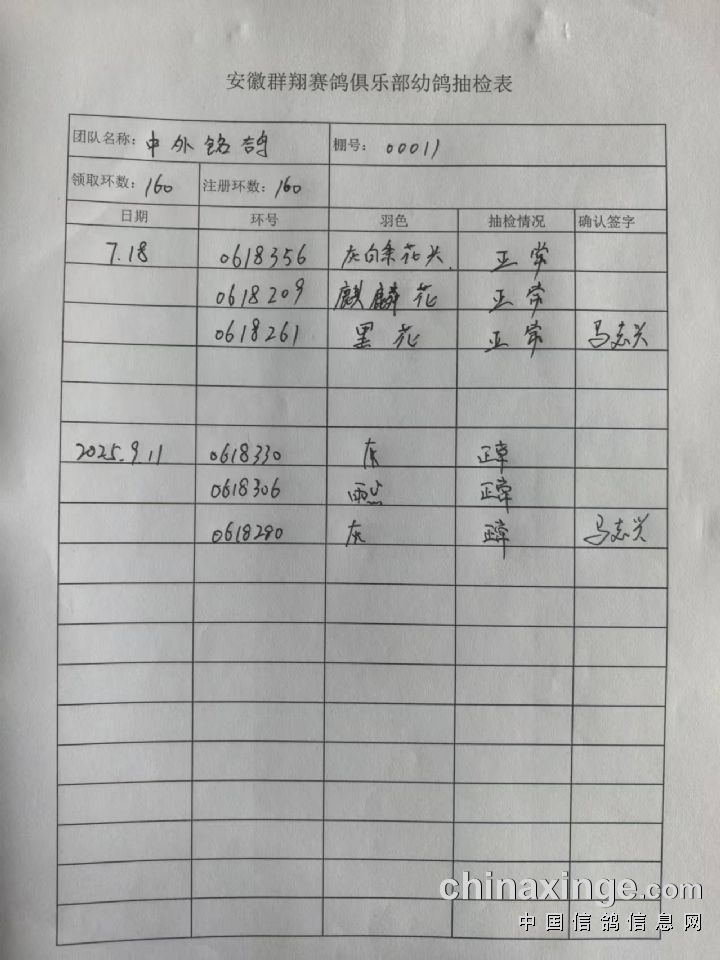 安徽群翔赛鸽俱乐部幼鸽抽检表
团队名称：中外铭鸽 棚号：00011
领取环数：160 注册环数：160
日期 环号 羽色 抽检情况 确认签字
7.18 0618356 灰白条花头. 正常
0618209 麒麟花 正常
0618261 黑花 正常 马志兴
2025.9.11 0618330 灰 正常
0618306 雨点 正常
0618280 灰 正常 马志兴
chinaxinge.com
中国信鸽信息网